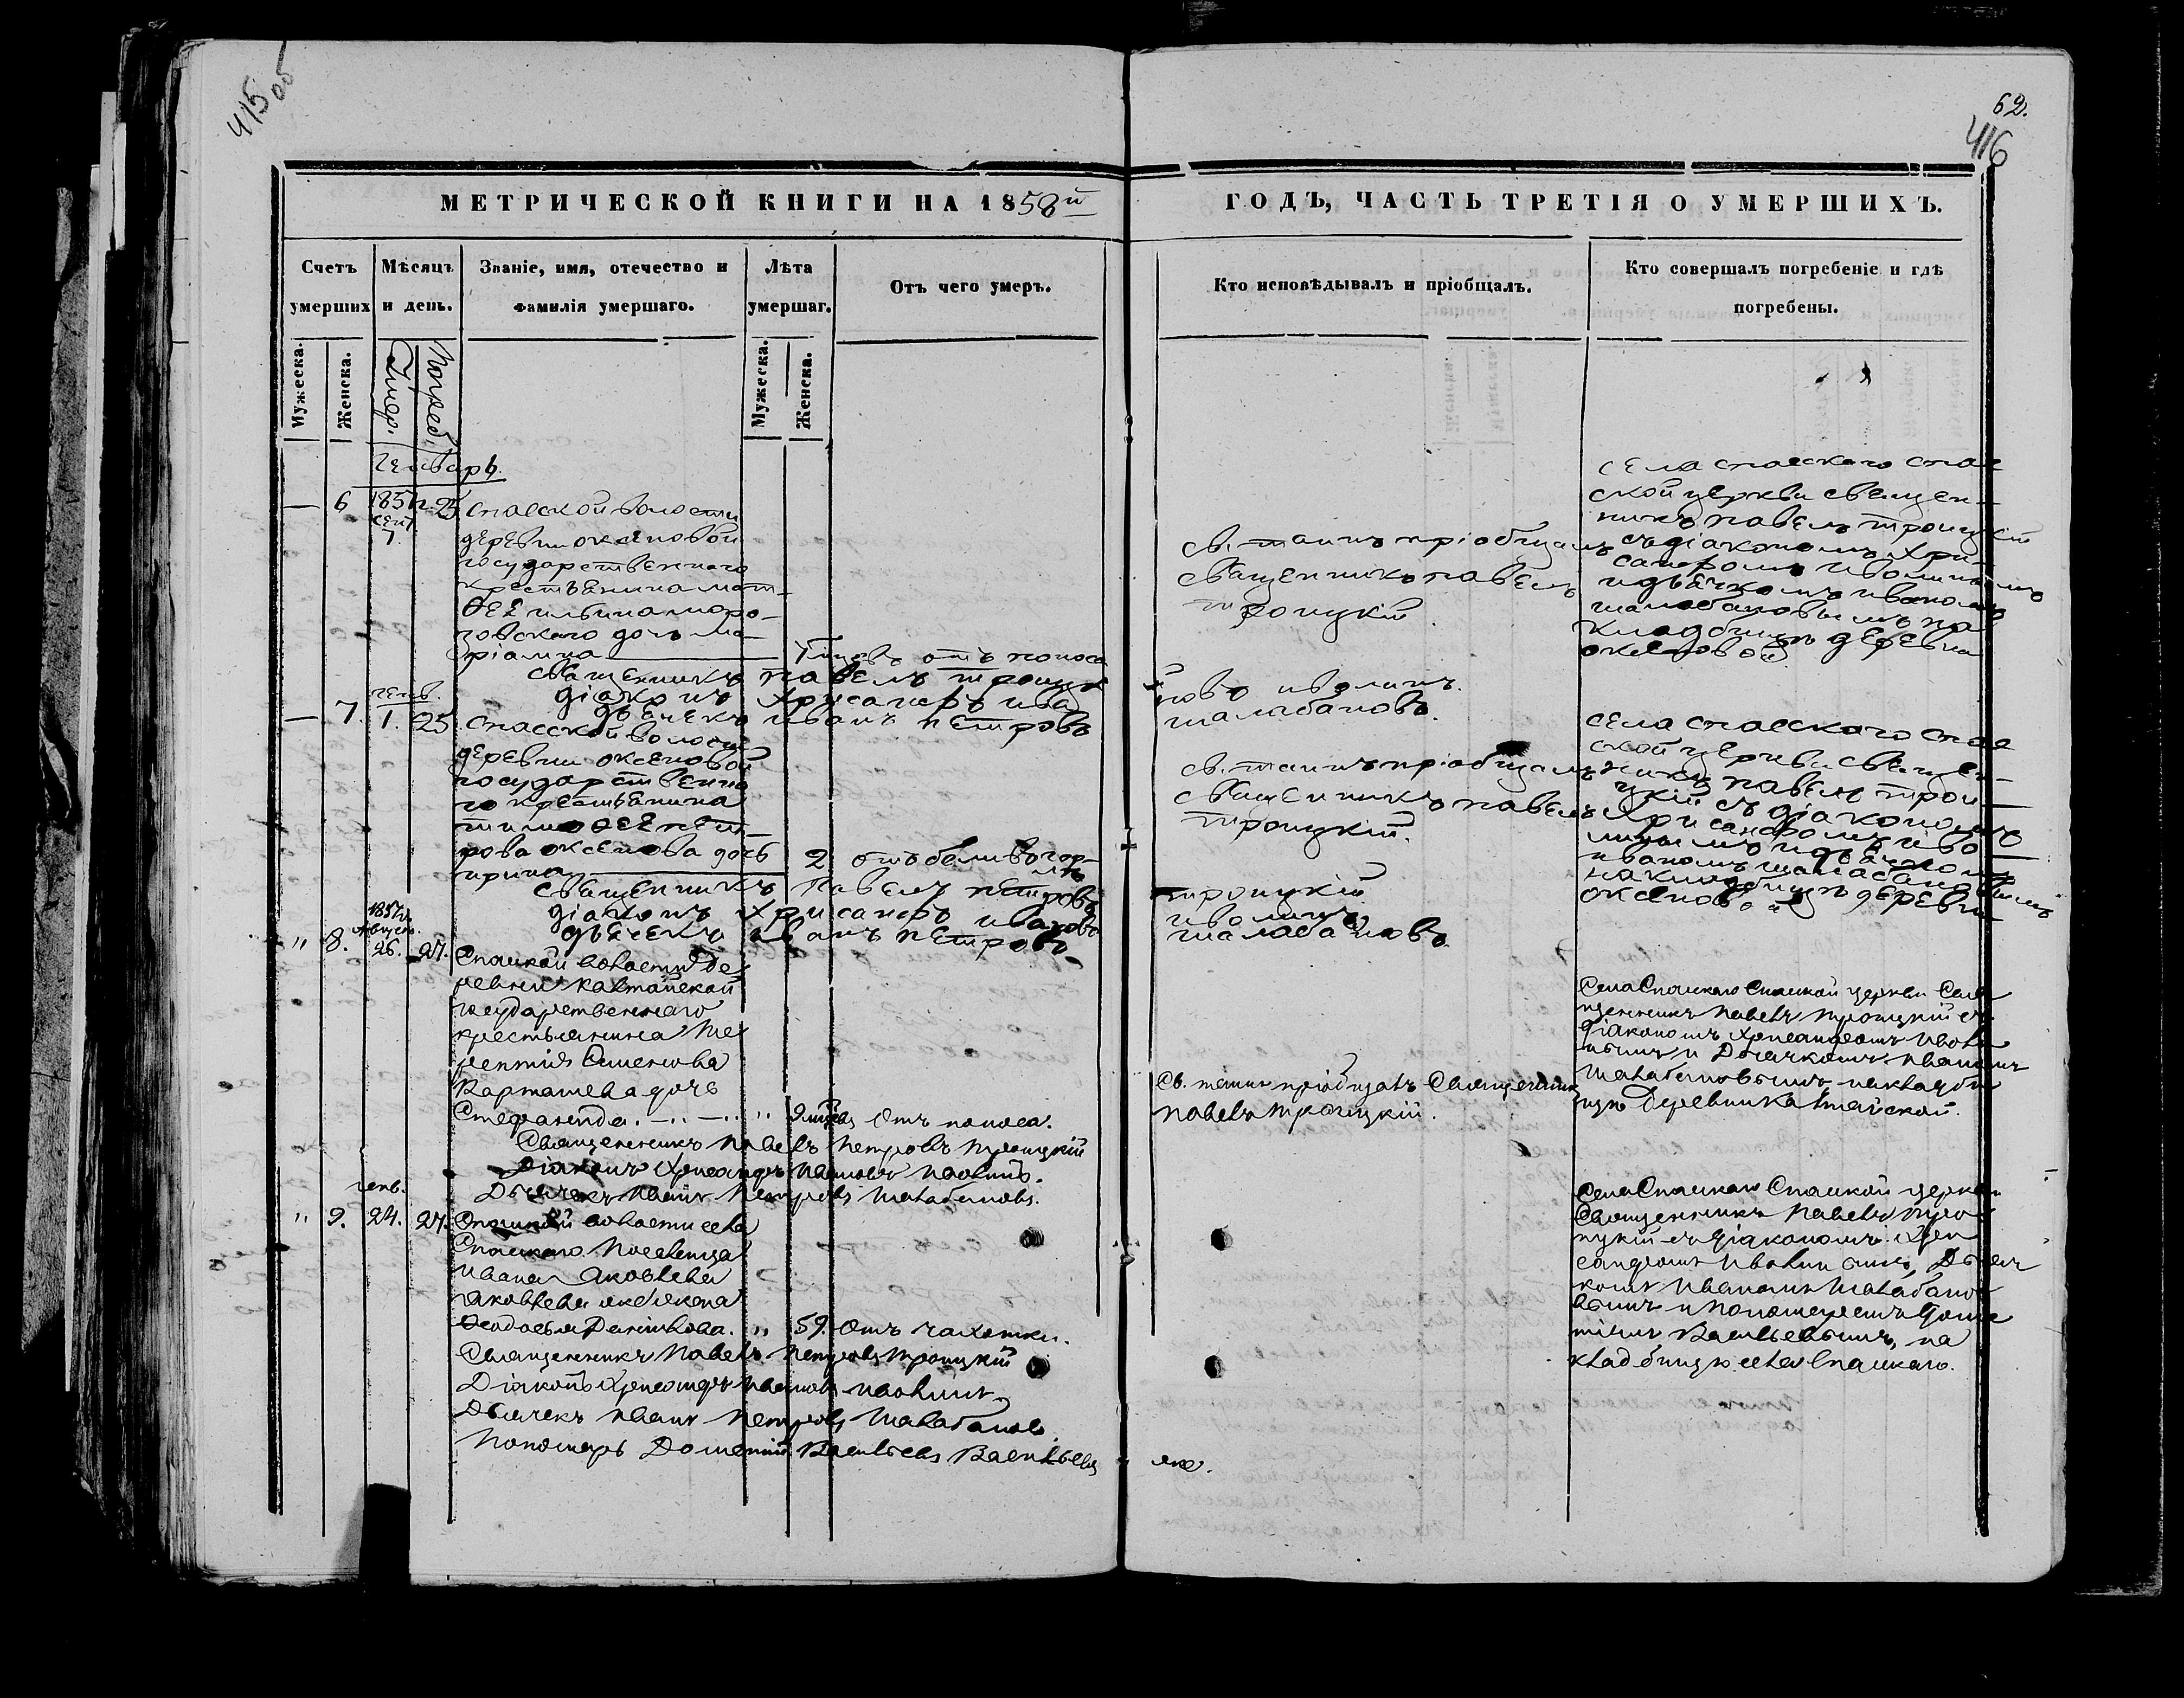 415 об
62.
416
МЕТРИЧЕСКОЙ КНИГИ НА 1858й
ГОДЪ, ЧАСТЬ ТРЕТІЯ О УМЕРШИХЪ.
Счетъ умерших
Мѣсяцъ и день.
Званіе, имя, отечество и фамилія умершаго.
Лѣта умершаг.
Отъ чего умеръ.
Кто исповѣдывалъ и пріобщалъ.
Кто совершалъ погребеніе и гдѣ погребены.
Мужеска.
Женска.
Умер.
Погреб.
Мужеска.
Женска.
Генварь.
— 6 1857 г. 25 Спасской волости
сент
7.
деревни оксеновой
государственнаго
крестьянина мат-
ѳея ильина моро-
зовскаго дочь ма-
ріамна отъ поноса
св. таинъ пріобщалъ
священникъ павелъ
троицкій.
села спасскаго спас
ской церкви священ-
никъ павелъ троицкій
съ діакономъ хри-
санфомъ иволинымъ
и дьячкомъ иваномъ
шалабановымъ на
кладбищѣ деревни
оксеновой
священникъ павелъ троицк
й
діаконъ хрисанфъ ива
новъ иволинъ.
дьячекъ иванъ петровъ
шалабановъ.
генв.
— 7. 1. 25. спасской волости
деревни оксеновой
государственна
го крестьянина
тимоѳея пет-
рова оксенова дочь
ирина 2 отъ боли въ гор-
лѣ
св. таинъ пріобщалъ
священникъ павелъ
троицкій.
села спасскаго спас
ской церкви священ-
никъ павелъ трои-
цкій съ діакономъ
хрисанфомъ иво-
линымъ и дьячкомъ
иваномъ шалабановымъ
на кладбищѣ деревни
оксеновой
священникъ павелъ петровъ
троицкій
діаконъ хрисанфъ ивановъ
иволинъ
дьячекъ иванъ петровъ
шалабановъ.
1857 г.
август.
" 8. 26. 27. Спасской волости де
ревни Калтайской
государственнаго
крестьянина Те
рентія Симонова
Карташева дочь
Стефанида. " отъ поноса.
Св. таинъ пріобщалъ Священник
Павелъ Троицкій.
Села Спасскаго Спасской церкви Свя
щенникъ Павелъ Троицкій съ
діакономъ Хрисанфомъ Иволи
нымъ и Дьячкомъ Иваномъ
Шалабановымъ, на кладби
щѣ деревни Калтайской.
Священникъ Павелъ Петровъ Троицкій
Діаконъ Хрисанфъ Ивановъ Иволинъ.
Дьячекъ Иванъ Петровъ Шалабановъ.
генв.
" 9. 24. 27. Спасской волости села
Спасскаго Поселенца
Ивана Яковлева
Яковлева жена
Ѳеодосья Данилова. " 59. Отъ чахотки.
Села Спасскаго Спасской церкви
Священникъ Павелъ Тро
ицкій съ діакономъ Хри
санфомъ Иволинымъ, Дьяч
комъ Иваномъ Шалабано
вымъ и Пономаремъ Доме
тіемъ Васильевымъ, на
кладбищѣ села Спасскаго.
Священникъ Павелъ Петровъ Троицкій
Діаконъ Хрисанфъ Ивановъ Иволинъ
Дьячекъ Иванъ Петровъ Шалабановъ.
Пономарь Дометій Васильевъ Васильевъ